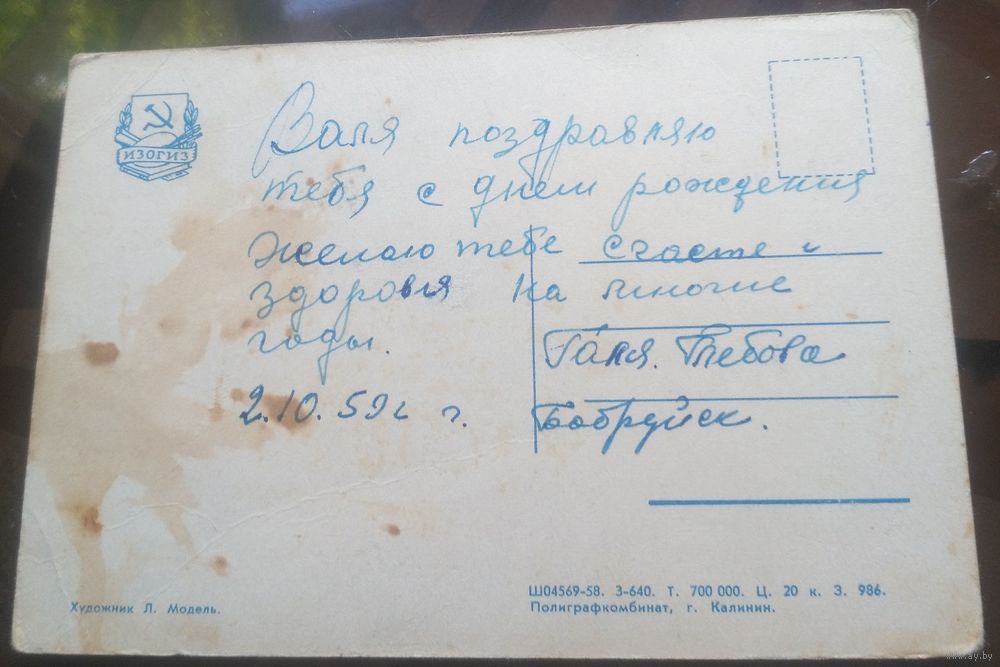 ИЗОГИЗ
Валя поздравляю
тебя с днем рождения
желаю тебе счастя и
здоровия на многие
годы.
Галя. Глебова
2.10.59г г. Бобруйск.
Художник Л. Модель.
Ш04569-58. З-640. Т. 700 000. Ц. 20 к. З. 986.
Полиграфкомбинат, г. Калинин.
www.ay.by